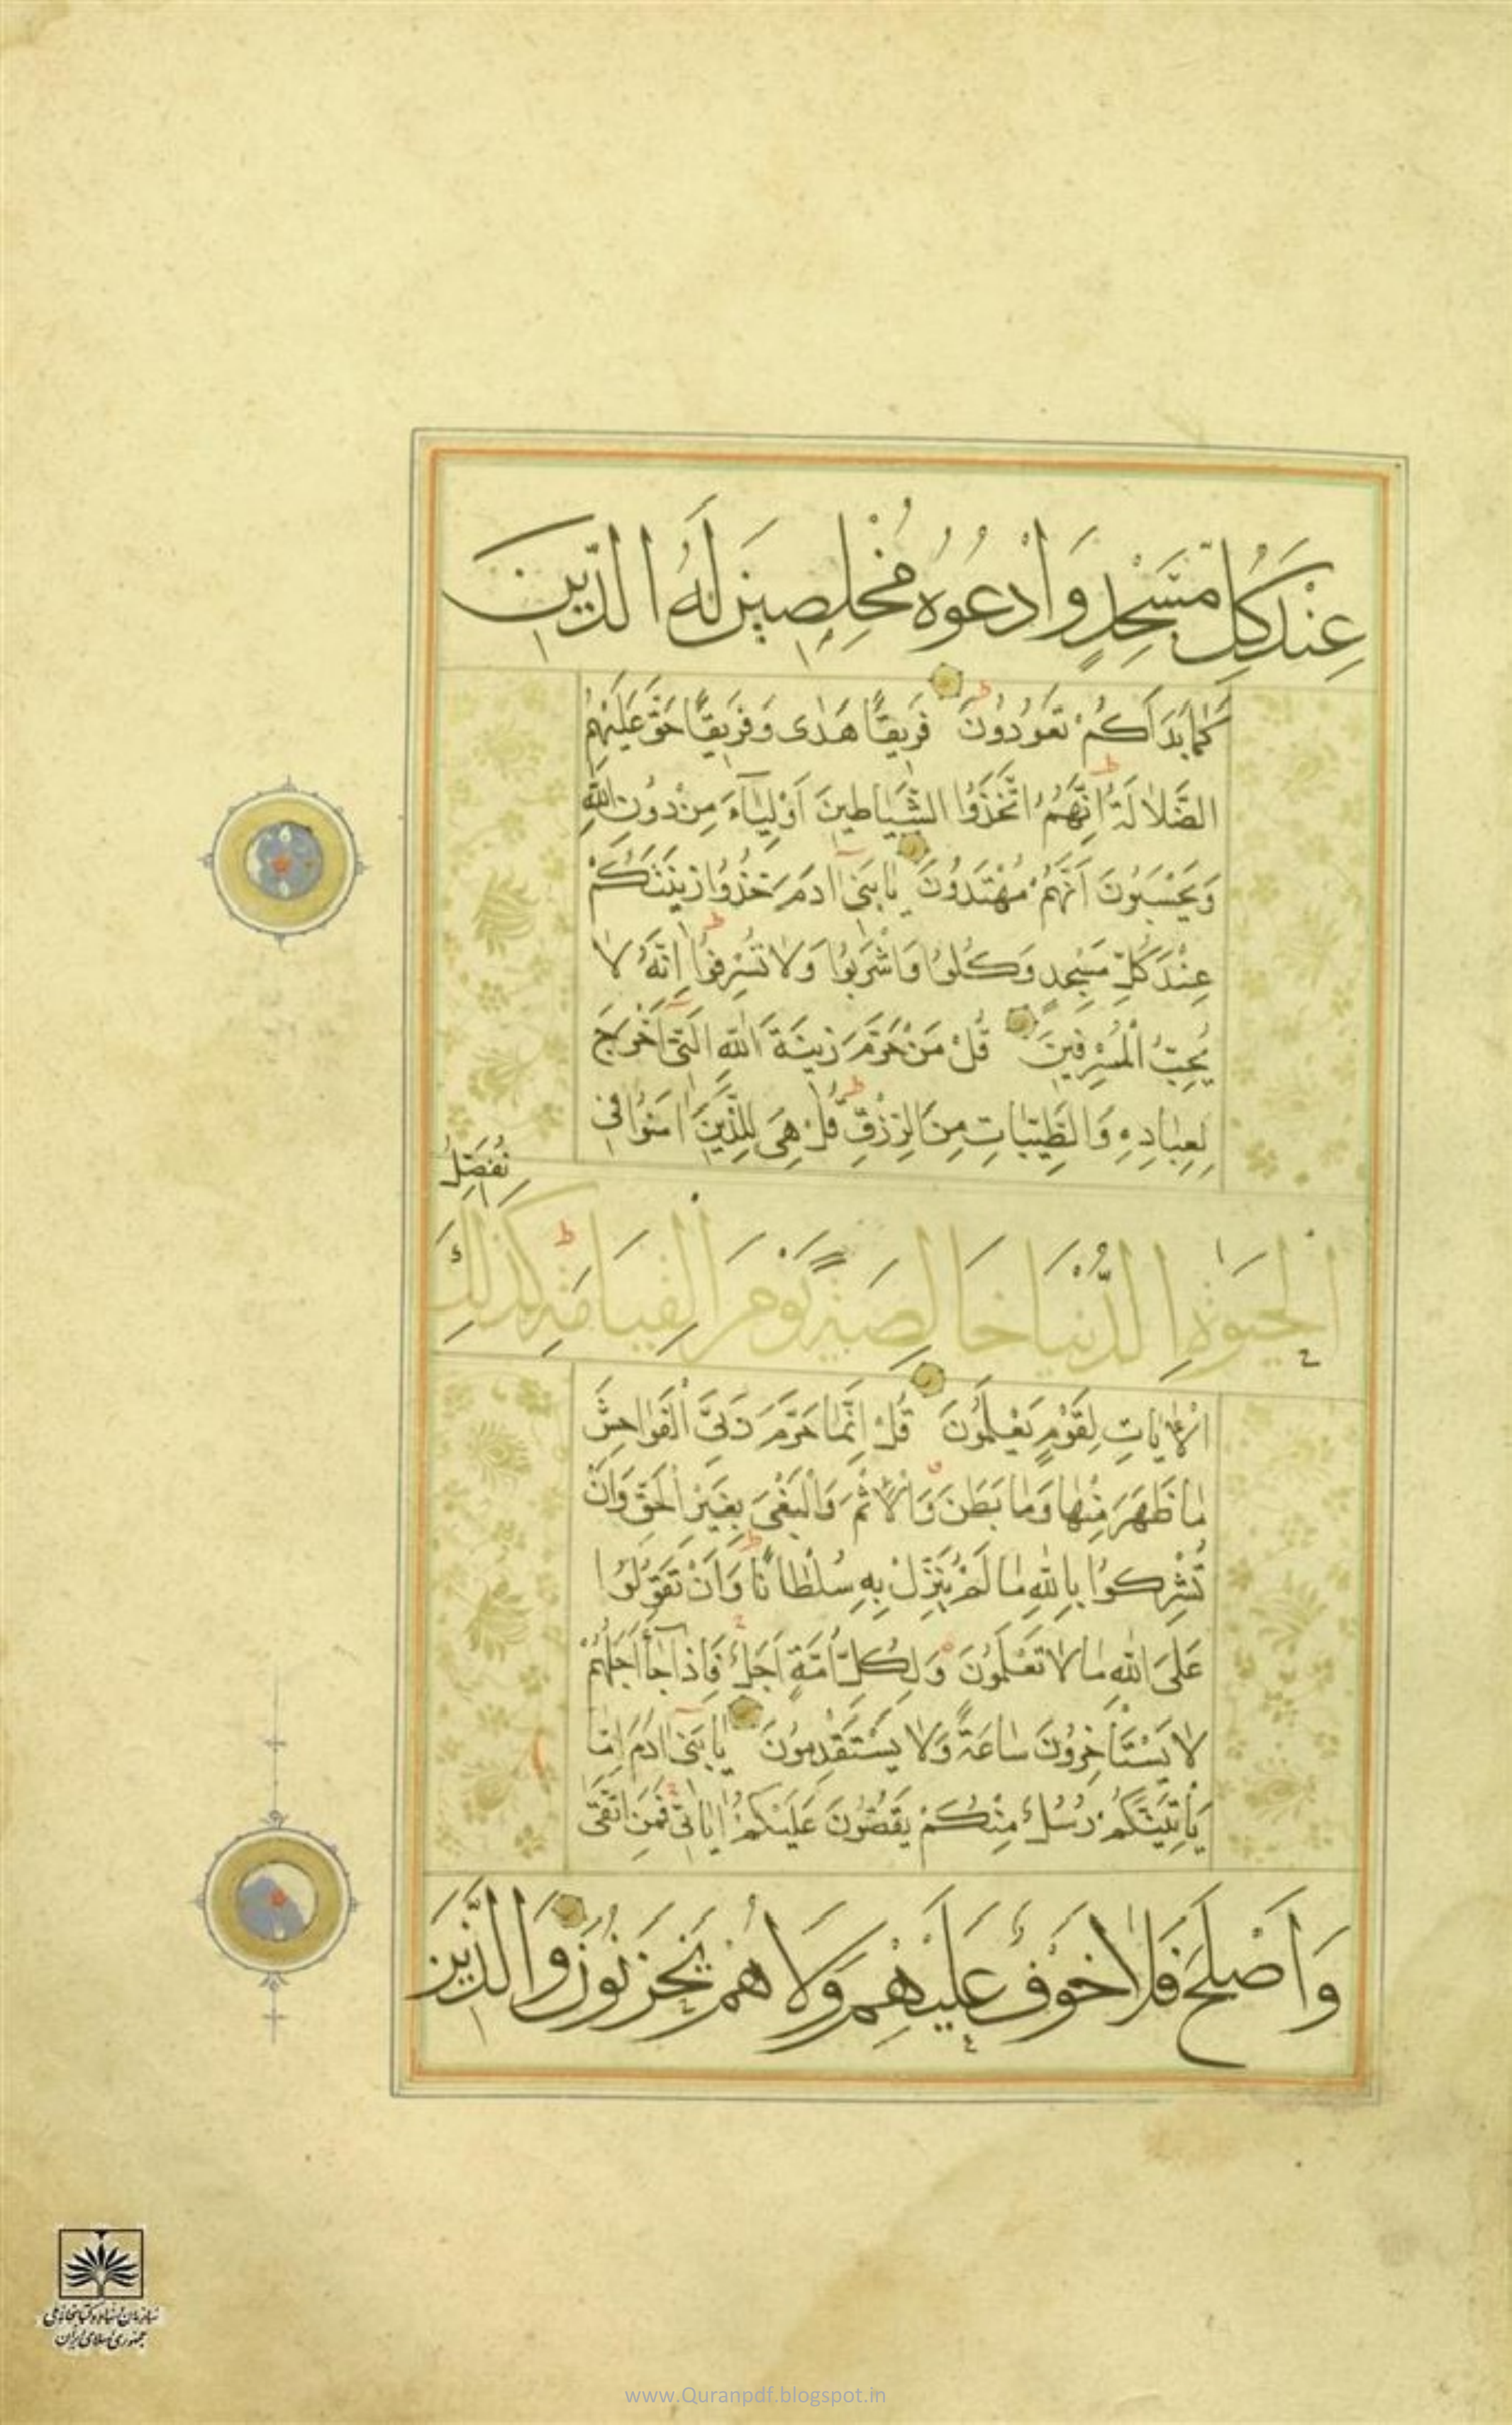 عِنْدَ كُلِّ مَسْجِدٍ وَادْعُوهُ مُخْلِصِينَ لَهُ الدِّينَ
كَمَا بَدَاَكُمْ تَعُودُونَ فَرِيقًا هَدٰى وَفَرِيقًا حَقَّ عَلَيْهِمُ
الضَّلَالَةُ اِنَّهُمُ اتَّخَذُوا الشَّيَاطِينَ اَوْلِيَآءَ مِنْ دُونِ اللّٰهِ
وَيَحْسَبُونَ اَنَّهُمْ مُهْتَدُونَ يَا بَنِىٓ اٰدَمَ خُذُوا زِينَتَكُمْ
عِنْدَ كُلِّ مَسْجِدٍ وَكُلُوا وَاشْرَبُوا وَلَا تُسْرِفُوا اِنَّهُ لَا
يُحِبُّ الْمُسْرِفِينَ قُلْ مَنْ حَرَّمَ زِينَةَ اللّٰهِ الَّتِىٓ اَخْرَجَ
لِعِبَادِهِ وَالطَّيِّبَاتِ مِنَ الرِّزْقِ قُلْ هِىَ لِلَّذِينَ اٰمَنُوا فِى
الْحَيٰوةِ الدُّنْيَا خَالِصَةً يَوْمَ الْقِيَامَةِ كَذٰلِكَ نُفَصِّلُ
الْاٰيَاتِ لِقَوْمٍ يَعْلَمُونَ قُلْ اِنَّمَا حَرَّمَ رَبِّىَ الْفَوَاحِشَ
مَا ظَهَرَ مِنْهَا وَمَا بَطَنَ وَالْاِثْمَ وَالْبَغْىَ بِغَيْرِ الْحَقِّ وَاَنْ
تُشْرِكُوا بِاللّٰهِ مَا لَمْ يُنَزِّلْ بِهِ سُلْطَانًا وَاَنْ تَقُولُوا
عَلَى اللّٰهِ مَا لَا تَعْلَمُونَ وَلِكُلِّ اُمَّةٍ اَجَلٌ فَاِذَا جَآءَ اَجَلُهُمْ
لَا يَسْتَأْخِرُونَ سَاعَةً وَلَا يَسْتَقْدِمُونَ يَا بَنِىٓ اٰدَمَ اِمَّا
يَأْتِيَنَّكُمْ رُسُلٌ مِنْكُمْ يَقُصُّونَ عَلَيْكُمْ اٰيَاتِى فَمَنِ اتَّقٰى
وَاَصْلَحَ فَلَا خَوْفٌ عَلَيْهِمْ وَلَا هُمْ يَحْزَنُونَ وَالَّذِينَ
سازمان اسناد و کتابخانه ملی
جمهوری اسلامی ایران
www.Quranpdf.blogspot.in